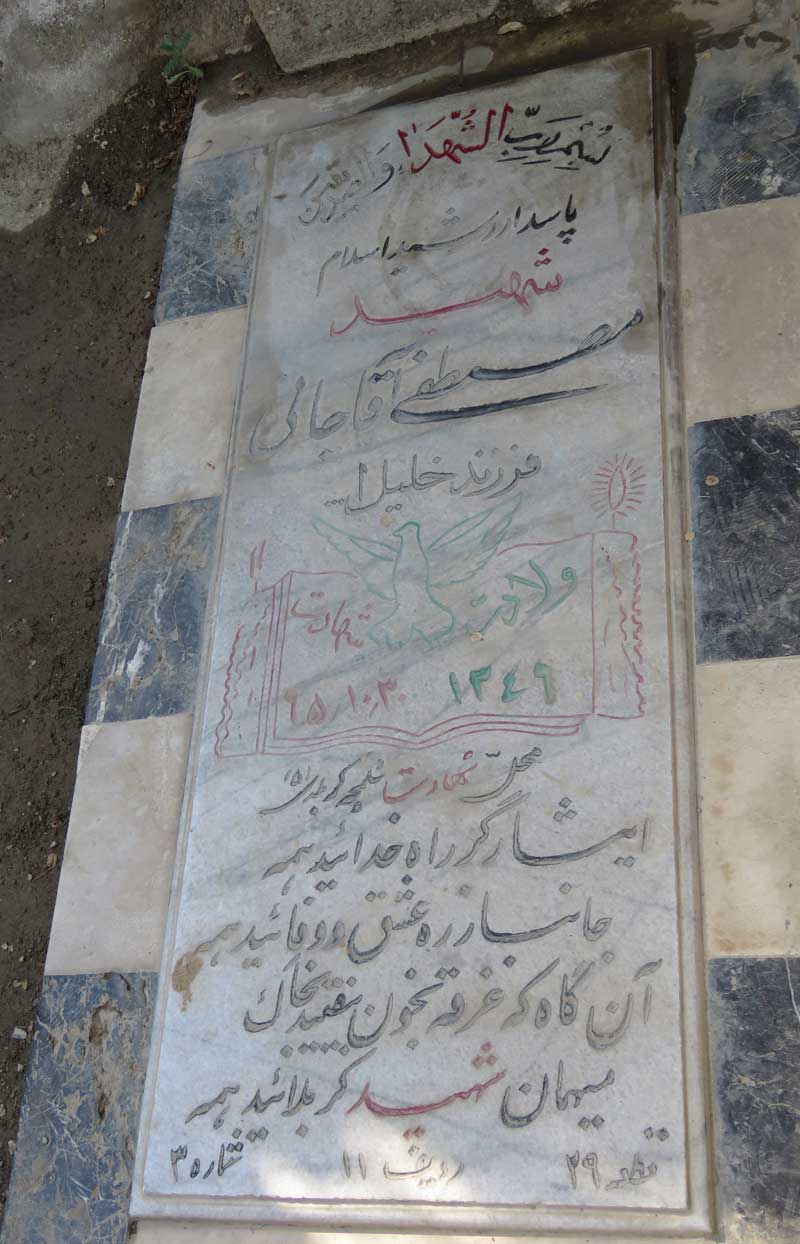 بسم رب الشهداء والصدیقین
پاسدار رشید اسلام
شهید
مصطفی آقاجانی
فرزند خلیل ا...
ولادت شهادت
۱۳۴۹ ۶۵٫۱۰٫۳۰
محل شهادت شلمچه کربلای ۵
ایثارگر راه خدائید همه
جانباز ره عشق و وفائید همه
آن گاه که غرقه بخون بنقیید بخاک
میهمان شهید کربلائید همه
قطعه ۲۹ ردیف ۱۱ شماره ۳